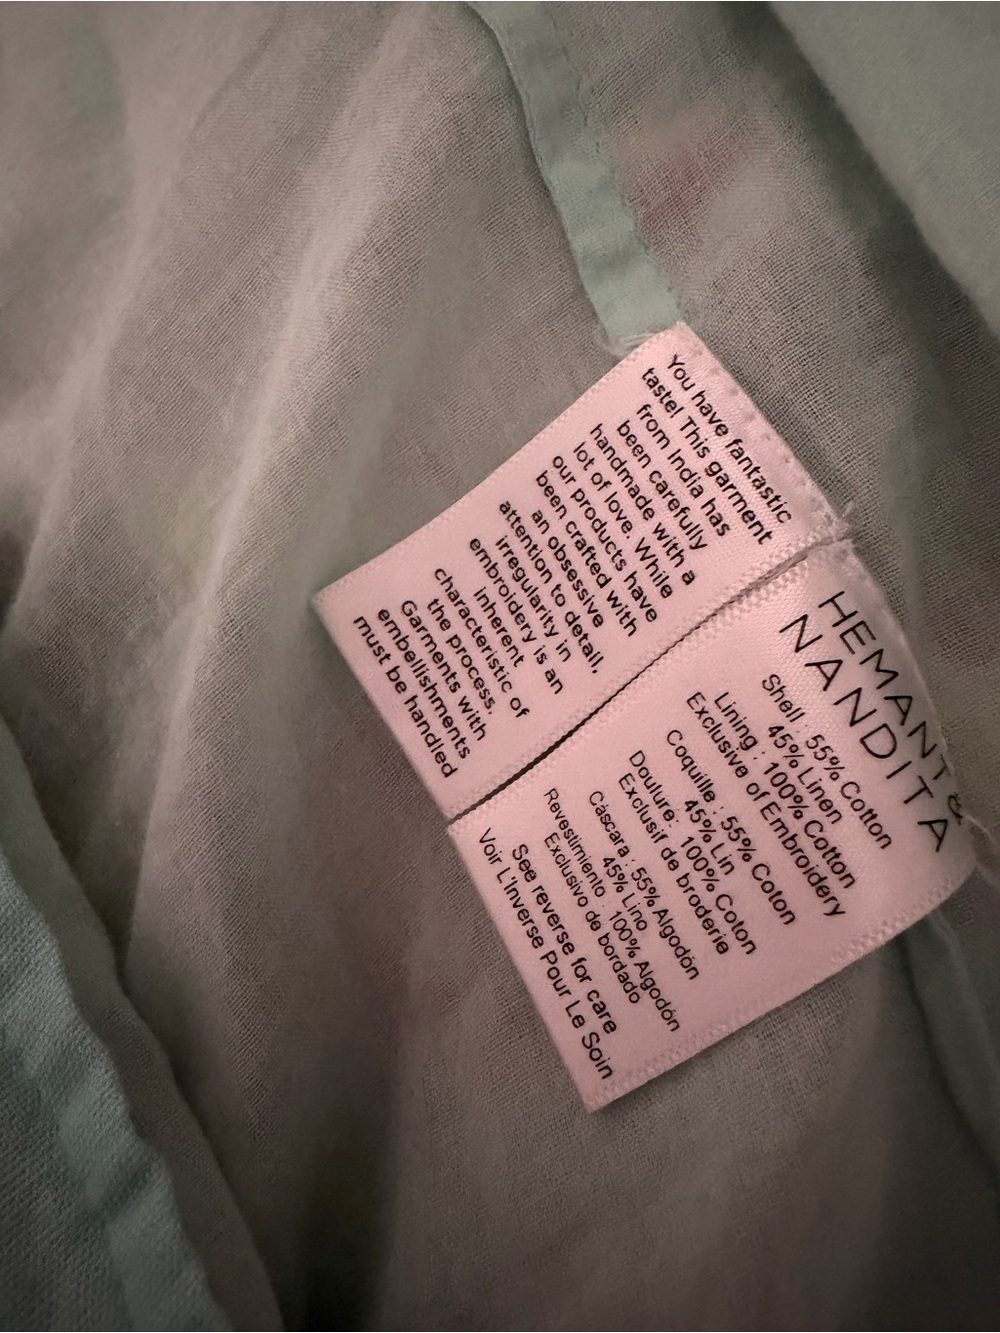 You have fantastic
taste! This garment
from India has
been carefully
handmade with a
lot of love. While
our products have
been crafted with
an obsessive
attention to detail,
irregularity in
embroidery is an
inherent
characteristic of
the process.
Garments with
embellishments
must be handled
HEMANT&
NANDITA
Shell : 55% Cotton
45% Linen
Lining : 100% Cotton
Exclusive of Embroidery
Coquille : 55% Coton
45% Lin
Doulure: 100% Coton
Exclusif de broderie
Cáscara : 55% Algodón
45% Lino
Revestimiento : 100% Algodón
Exclusivo de bordado
See reverse for care
Voir L'Inverse Pour Le Soin